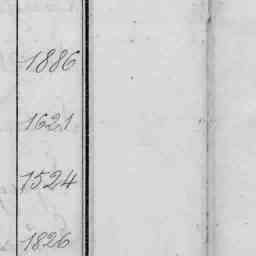 1886
1621
1524
1826